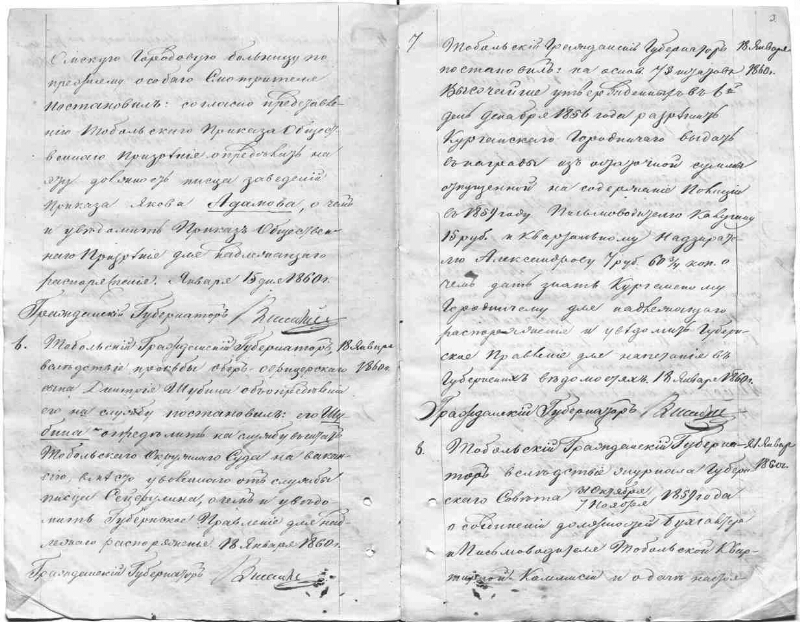 Омскую Городовую больницу по
прежнему особаго Смотрителя
Постановилъ: согласно представле-
нію Тобольскаго Приказа Общест-
веннаго Призрѣнія опредѣлить на
эту должность писца заведеній
Приказа Якова Адамова, о чемъ
и увѣдомить Приказъ Обществен-
наго Призрѣнія для надлежащаго
распоряженія. Января 15 дня 1860 г.
Гражданскій Губернаторъ
6. Тобольскій Гражданскій Губернаторъ, 18 Января
вслѣдствіе просьбы оберъ-офицерскаго 1860 г.
сына Дмитрія Шубина объ опредѣленіи
его на службу постановилъ: его Шу-
бина опредѣлить на службу въ штатъ
Тобольскаго Окружнаго Суда на вакан-
сію, вмѣсто уволеннаго отъ службы
писца о чемъ и увѣдо-
мить Губернское Правленіе для над-
лежащаго распоряженія 18 Января 1860 г.
Гражданскій Губернаторъ
7 Тобольскій Гражданскій Губернаторъ 18 Января
постановилъ: на основ. штатовъ 1860 г.
Высочайше утвержденныхъ въ
день декабря 1856 года разрѣшить
Курганскаго Городничаго выдать
въ награды изъ остаточной суммы
отпущенной на содержаніе Полиціи
въ 1859 году Письмоводителю
15 руб. и Квартальному Надзирате-
лю Александрову 7 руб. 60 3/4 коп. о
чемъ дать знать Курганскому
Городничему для надлежащаго
распоряженія и увѣдомить Губерн-
ское Правленіе для напечатанія въ
Губернскихъ вѣдомостяхъ. 18 Января 1860 г.
Гражданскій Губернаторъ
8. Тобольскій Гражданскій Губерна- 21 Января
торъ вслѣдствіе журнала Губерн- 1860 г.
скаго Совѣта 31 Октября
7 Ноября 1859 года
о соединеніи должностей Бухгалтера
и Письмоводителя Тобольской Квар-
тирной Коммисіи и о